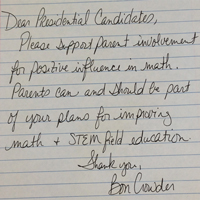 Dear Presidential Candidates,
Please support parent involvement
for positive influence in math.
Parents can and should be part
of your plans for improving
math + STEM field education
Thank you,
Bon Crowder